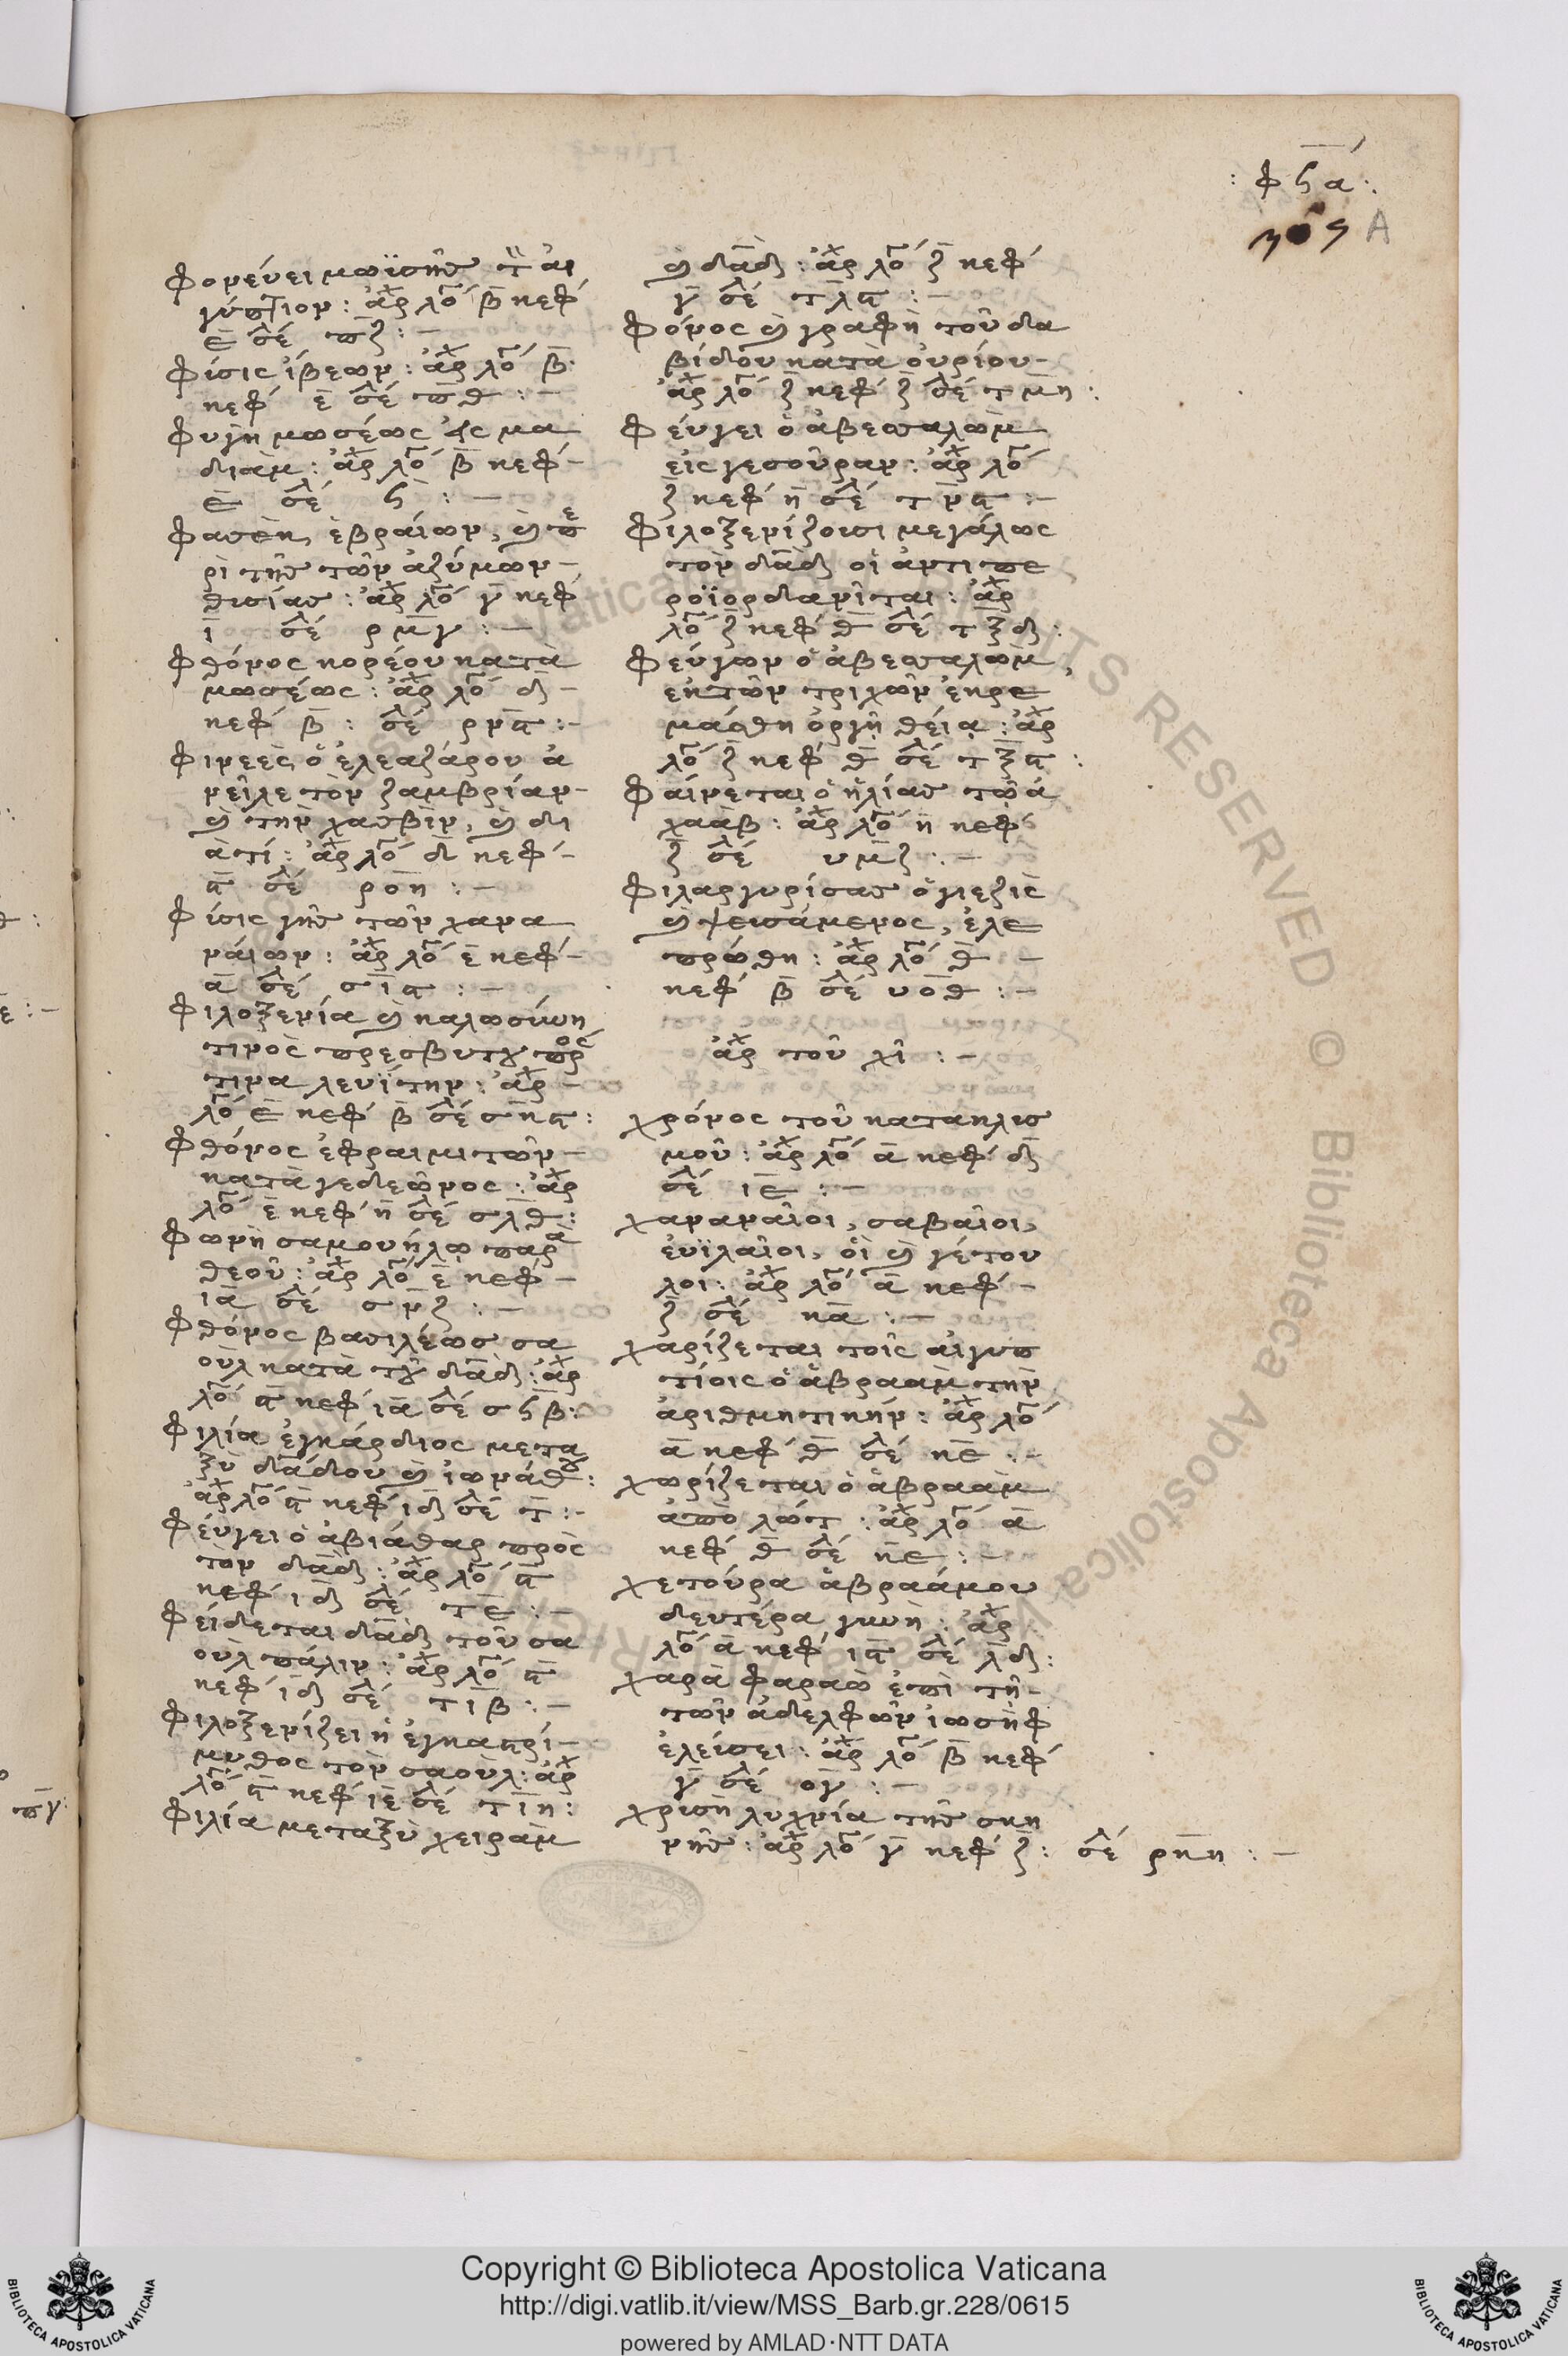 : φϟα :
A
φονεύει μωϊσῆς τ̈ αἰ
γύπτιον : ἀρχ λό β̅ κεφ́
ε̅ σελ π̅ζ : –
φύσις ἰβεων : ἀρχ λό β̅
κεφ́ ε̅ σελ π̅θ : –
φυγὴ μωσέως εἰς μα
διάμ : ἀρχ λό β̅ κεφ́ –
ε̅ σελ ϟ : –
φασὲκ ἑβραίων, ϗ πε
ρὶ τῆς τῶν ἀζύμων –
θυσίας : ἀρχ λό γ̅ κεφ́
ι̅ σελ ρ̅μ̅γ : –
φθόνος κορέου κατὰ
μωσέως : ἀρχ λό δ̅ –
κεφ́ β̅ : σελ ρ̅ν̅ϛ : –
φινεὲς ὁ ἐλεαζάρου ἀ
νεῖλε τὸν ζαμβρίαν –
ϗ τὴν χασβὶν, ϗ δι
ατί : ἀρχ λό δ̅ κεφ́ –
ϛ̅ σελ ρ̅ο̅η : –
φύσις γῆς τῶν χανα
ναίων : ἀρχ λό ε̅ κεφ́ –
α̅ σελ σ̅ι̅ϛ : –
φιλοξενία ϗ καλωσύνη
τινὸς πρεσβυτου πρὸς
τινα λευΐτην : ἀρχ –
λό ε̅ κεφ́ β̅ σελ σ̅κ̅ϛ :
φθόνος ἐφραιμιτῶν –
κατὰ γεδεῶνος : ἀρχ
λό ε̅ κεφ́ η̅ σελ σ̅λ̅θ :
φωνὴ σαμουήλῳ παρὰ
θεοῦ : ἀρχ λό ε̅ κεφ́ –
ι̅α̅ σελ σ̅ν̅ζ : –
φθόνος βασιλέως σα
οὺλ κατὰ τοῦ δα̅δ : ἀρχ
λό ϛ̅ κεφ́ ι̅α̅ σελ σ̅ϟ̅β :
φιλία ἐγκάρδιος μετα
ξὺ δα̅δου ϗ ἰωνάθου :
ἀρχ λό ϛ̅ κεφ́ ι̅δ σελ τ̅ : –
φεύγει ὁ ἀβιάθαρ πρὸς
τὸν δα̅δ : ἀρχ λό ϛ̅
κεφ́ ι̅δ σελ τ̅ε : –
φείδεται δα̅δ τοῦ σα
οὺλ πάλιν : ἀρχ λό ϛ̅
κεφ́ ι̅δ σελ τ̅ι̅β : –
φιλοξενίζει ἡ ἐγκαστρί –
μυθος τὸν σαούλ : ἀρχ
λό ϛ̅ κεφ́ ι̅ε̅ σελ τ̅ι̅η :
φιλία μεταξὺ χειρὰμ
ϗ δα̅δ : ἀρχ λό ζ̅ κεφ́
γ̅ σελ τ̅λ̅ϛ : –
φόνος ϗ γραφὴ τοῦ δα
βίδου κατὰ οὐρίου –
ἀρχ λό ζ̅ κεφ́ ζ̅ σελ τ̅μ̅η :
φεύγει ὁ ἀβεσσαλὼμ
εἰς γεσοῦραν : ἀρχ λό
ζ̅ κεφ́ η̅ σελ τ̅ν̅ϛ : –
φιλοξενίζουσι μεγάλως
τὸν δα̅δ οἱ ἀντιπε
ροϊορδανῖται : ἀρχ
λό ζ̅ κεφ́ θ̅ σελ τ̅ξ̅δ :
φεύγων ὁ ἀβεσσαλὼμ,
ἐκ τῶν τριχῶν ἐκρε
μάσθη ὀργῇ θείᾳ : ἀρχ
λό ζ̅ κεφ́ θ̅ σελ τ̅ξ̅ϛ :
φαίνεται ὁ ἠλίας τῷ ἀ
χαάβ : ἀρχ λό η̅ κεφ́
ζ̅ σελ υ̅μ̅ζ : –
φιλαργυρίσας ὁ γιεζὶς
ϗ ψευσάμενος, ἐλε
πρώθη : ἀρχ λό θ̅ –
κεφ́ β̅ σελ υ̅ο̅θ : –
ἀρχ τοῦ χῖ : –
χρόνος τοῦ κατακλυσ
μοῦ : ἀρχ λό α̅ κεφ́ δ̅
σελ ι̅ε : –
χαναναῖοι, σαβαῖοι,
εὐϊλαῖοι, οἱ ϗ γέτου
λοι : ἀρχ λό α̅ κεφ́ –
ζ̅ σελ κ̅α : –
χαρίζεται τοῖς αἰγυπ
τίοις ὁ ἀβραὰμ τὴν
ἀριθμητικήν : ἀρχ λό
α̅ κεφ́ θ̅ σελ κ̅ε : –
χωρίζεται ὁ ἀβραὰμ
ἀπὸ λώτ : ἀρχ λό α̅
κεφ́ θ̅ σελ κ̅ε : –
χετούρα ἀβραάμου
δευτέρα γυνὴ : ἀρχ
λό α̅ κεφ́ ι̅ϛ̅ σελ λ̅δ :
χαρὰ φαραὼ ἐπὶ τῇ –
τῶν ἀδελφῶν ἰωσὴφ
ἐλεύσει : ἀρχ λό β̅ κεφ́
γ̅ σελ ο̅γ : –
χρυσὴ λυχνία τῆς σκη
νῆς : ἀρχ λό γ̅ κεφ́ ζ̅ : σελ ρ̅κ̅η : –
Copyright © Biblioteca Apostolica Vaticana
http://digi.vatlib.it/view/MSS_Barb.gr.228/0615
powered by AMLAD·NTT DATA